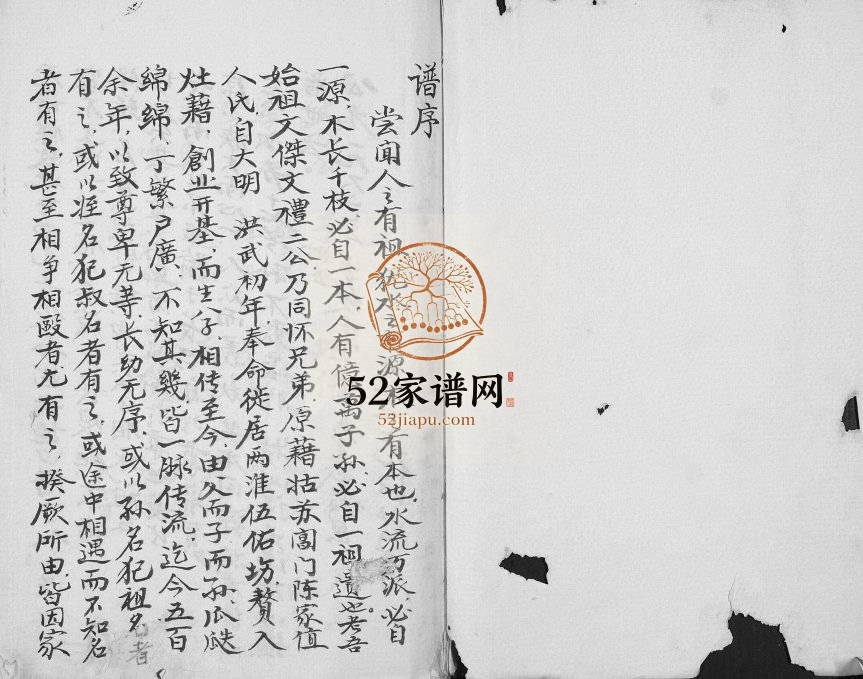 谱序
尝闻人之有祖，犹水之源，有本也，水流万派，必自
一源，木长千枝，必自一本，人有億萬子孙，必自一祖遺也。考吾
始祖文傑文禮二公，乃同怀兄弟，原藉姑苏閶门陈家值
人氏，自大明　洪武初年奉命徙居两淮伍佑场，贅入
灶藉，創业开基，而生八子，相传至今，由父而子而孙，瓜瓞
綿綿，丁繁户廣，不知其幾，皆一脉传流，迄今五百
余年，以致尊卑无等，长幼无序，或以孙名犯祖名者
有之，或以姪名犯叔名者有之，或途中相遇而不知名
者有之，甚至相争相毆者尤有之，揆厥所由，皆因家
52家谱网
52jiapu.com